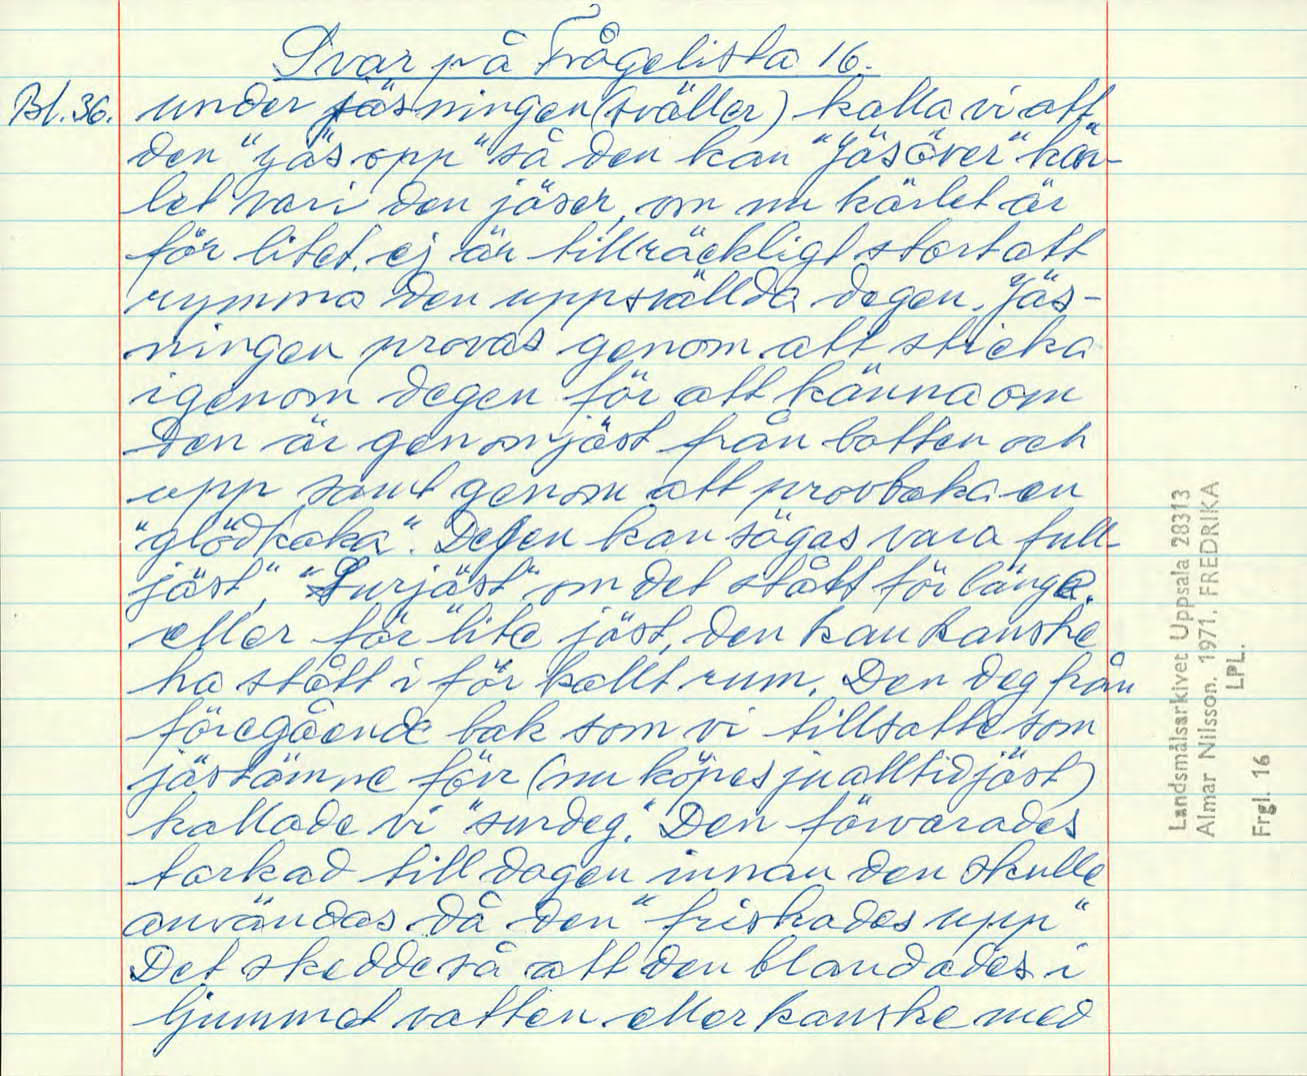 Svar på Frågelista 16.
Bl. 36. under jäsningen (sväller) kalla vi att
den "jäs opp" så den kan "jäsöver" kär-
let vari den jäser, om nu kärlet är
för litet. ej är tillräckligt stort att
rymma den uppsvällda degen. Jäs-
ningen provas genom att sticka
igenom degen för att känna om
den är genomjäst från botten och
upp samt genom att provbaka en
"glödkaka". Degen kan sägas vara full-
jäst", "Surjäst" om det stått för länge.
eller för lite jäst, den kan kanske
ha stått i för kallt rum. Den deg från
föregående bak som vi tillsatte som
jästämne förr (nu köpes ju alltid jäst)
kallade vi "surdeg." Den förvarades
torkad till dagen innan den skulle
användas. då den "friskades upp"
Det skedde så att den blandades i
ljummet vatten eller kanske med
Landsmålsarkivet Uppsala 28313
Almar Nilsson. 1971. FREDRIKA
LPL.
Frgl. 16